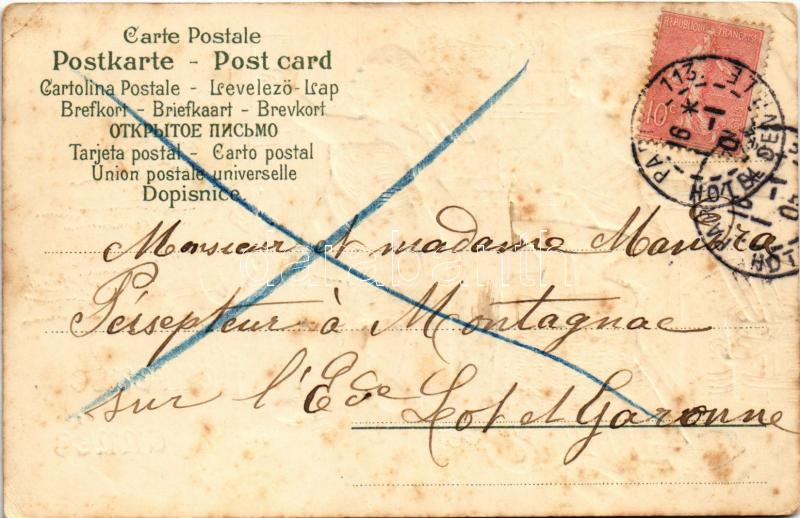 Carte Postale
Postkarte - Post card
Cartolina Postale - Levelezö-Lap
Brefkort - Briefkaart - Brevkort
ОТКРЫТОЕ ПИСЬМО
Tarjeta postal - Carto postal
Union postale universelle
Dopisnice
REPUBLIQUE FRANÇAISE
10
PAR
113
16
HOT
Monsieur et madame
Pérsepteur à Montagnac
sur l'E Lot et Garonne
darabanth